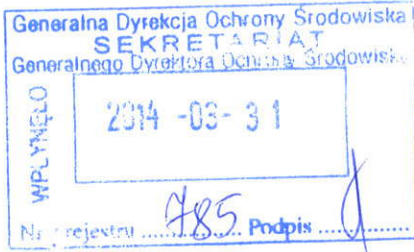 Generalna Dyrekcja Ochrony Środowiska
SEKRETARIAT
Generalnego Dyrektora Ochrony Środowiska
WPŁYNĘŁO
2014 -03- 31
Nr rejestru ........ 785 Podpis ........